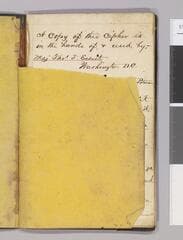 A Copy of this Cipher is
in the hands of & used by—
Maj Thos. T. Eckert
Washington DC